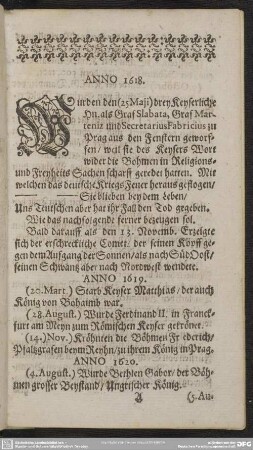 ANNO 1618.
Würden den (23 Maji) drey Keyserliche
Hn. als Graf Slabata, Graf Mar-
teniz und Secretarius Fabricius zu
Prag aus den Fenstern geworf-
fen / weil sie des Keysers Wort
wider die Böhmen in Religions-
und Freyheits Sachen scharff geredet hatten. Mit
welchen das deutsche Kriegs Feuer heraus geflogen /
Sie blieben bey dem Leben /
Uns Teutschen aber hat ihr Fall den Tod gegeben.
Wie das nachfolgende ferner bezeugen sol.
Bald darauff als den 13. Novemb. Erzeigte
sich der erschreckliche Comet / der seinen Köpff ge-
gen dem Aufgang der Sonnen / als nach Süd Ost /
seinen Schwantz aber nach Nordwest wendete.
ANNO 1619.
(20. Mart.) Starb Keyser Matthias / der auch
König von Böhaimb war.
(28. August.) Wurde Ferdinand II. in Franck-
furt am Meyn zum Römischen Keyser gekrönet.
(14.) Nov. Kröhnten die Böhmen Friederich /
Pfaltzgrafen beym Rhyhn / zu ihrem König in Prag.
ANNO 1620.
(4. August.) Wurde Bethlen Gabor / der Böh-
men grosser Beystand / Ungrischer König.
(5. Au-